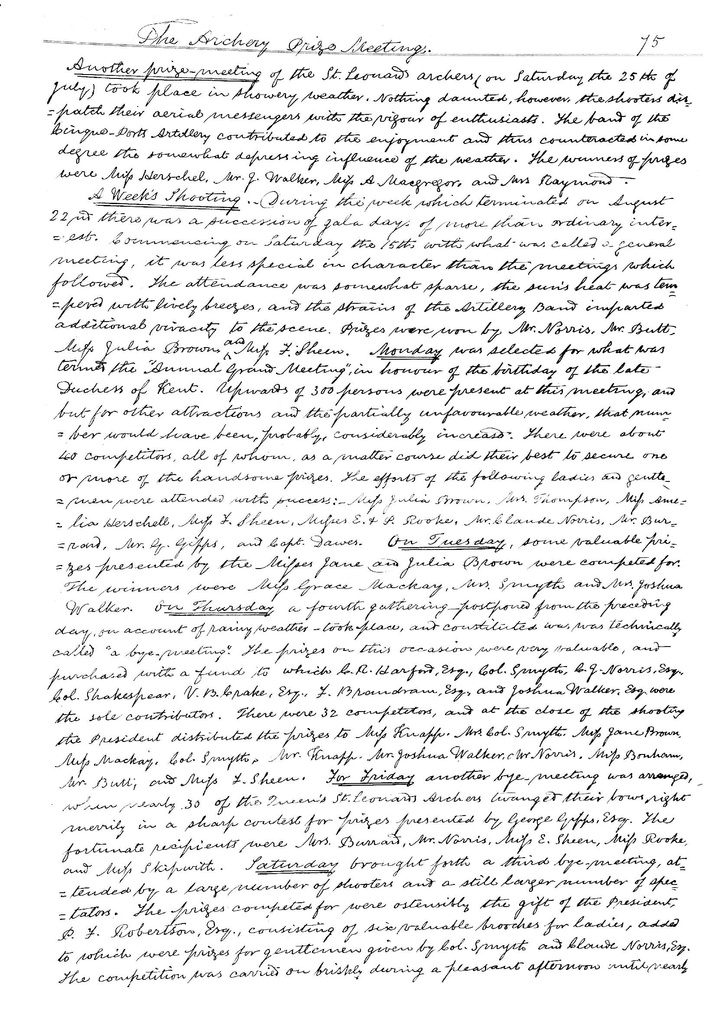 The Archery Prize Meetings. 75
Another prize-meeting of the St. Leonards archers (on Saturday the 25th of
July) took place in showery weather. Nothing daunted, however, the shooters dis-
=patch their aerial messengers with the vigour of enthusiasts. The band of the
Cinque-Ports Artillery contributed to the enjoyment and thus counteracted in some
degree the somewhat depressing influence of the weather. The winners of prizes
were Miss Herschel, Mr. J. Walker, Miss A Macgregor, and Mrs Raymond.
A Week's Shooting. During the week which terminated on August
22nd there was a succession of gala days of more than ordinary inter=
=est. Commencing on Saturday the 15th with what was called a general
meeting, it was less special in character than the meetings which
followed. The attendance was somewhat sparse, the sun's heat was tem=
=pered with lively breezes, and the strains of the Artillery Band imparted
additional vivacity to the scene. Prizes were won by Mr. Norris, Mr. Butt,
Miss Julia Brown and Miss F. Sheen. Monday was selected for what was
termed the "Annual Grand Meeting", in honour of the birthday of the late
Duchess of Kent. Upwards of 300 persons were present at this meeting, and
but for other attractions and the partially unfavourable weather, that num=
=ber would have been, probably, considerably increased. There were about
40 competitors, all of whom, as a matter course did their best to secure one
or more of the handsome prizes. The efforts of the following ladies and gentle=
=men were attended with success:- Miss Julia Brown, Mrs. Thompson, Miss Ame=
=lia Herschell, Miss F. Sheen, Misses E. & P. Rooke, Mr. Claude Norris, Mr. Bur=
=rard, Mr. G. Gipps, and Capt. Dawes. On Tuesday, some valuable pri=
=zes presented by the Misses Jane and Julia Brown were competed for.
The winners were Miss Grace Mackay, Mrs. Smyth and Mr. Joshua
Walker. On Thursday a fourth gathering - postponed from the preceding
day, on account of rainy weather - took place, and constituted was, was technically
called "a bye-meeting". The prizes on this occasion were very valuable, and
purchased with a fund to which C. R. Harford, Esq., Col. Smyth, C. J. Norris, Esq.
Col. Shakespear, V. B. Crake, Esq., F. Brandram, Esq. and Joshua Walker, Esq. were
the sole contributors. There were 32 competitors, and at the close of the shooting
the President distributed the prizes to Miss Knapp, Mrs. Col. Smyth, Miss Jane Brown,
Miss Mackay, Col. Smyth, Mr. Knapp, Mr. Joshua Walker, Mr Norris, Miss Bonham,
Mr. Butt, and Miss F. Sheen. For Friday another bye-meeting was arranged,
when nearly 30 of the Queen's St. Leonards Archers twanged their bows right
merrily in a sharp contest for prizes presented by George Gipps, Esq. The
fortunate recipients were Mrs. Burrard, Mr. Norris, Miss E. Sheen, Miss Rooke,
and Miss Skipwith. Saturday brought forth a third bye-meeting, at=
=tended by a large number of shooters and a still larger number of spec=
=tators. The prizes competed for were ostensibly the gift of the President,
P. F. Robertson, Esq., consisting of six valuable brooches for ladies, added
to which were prizes for gentlemen given by Col. Smyth and Claude Norris, Esq.
The competition was carried on briskly during a pleasant afternoon until nearly